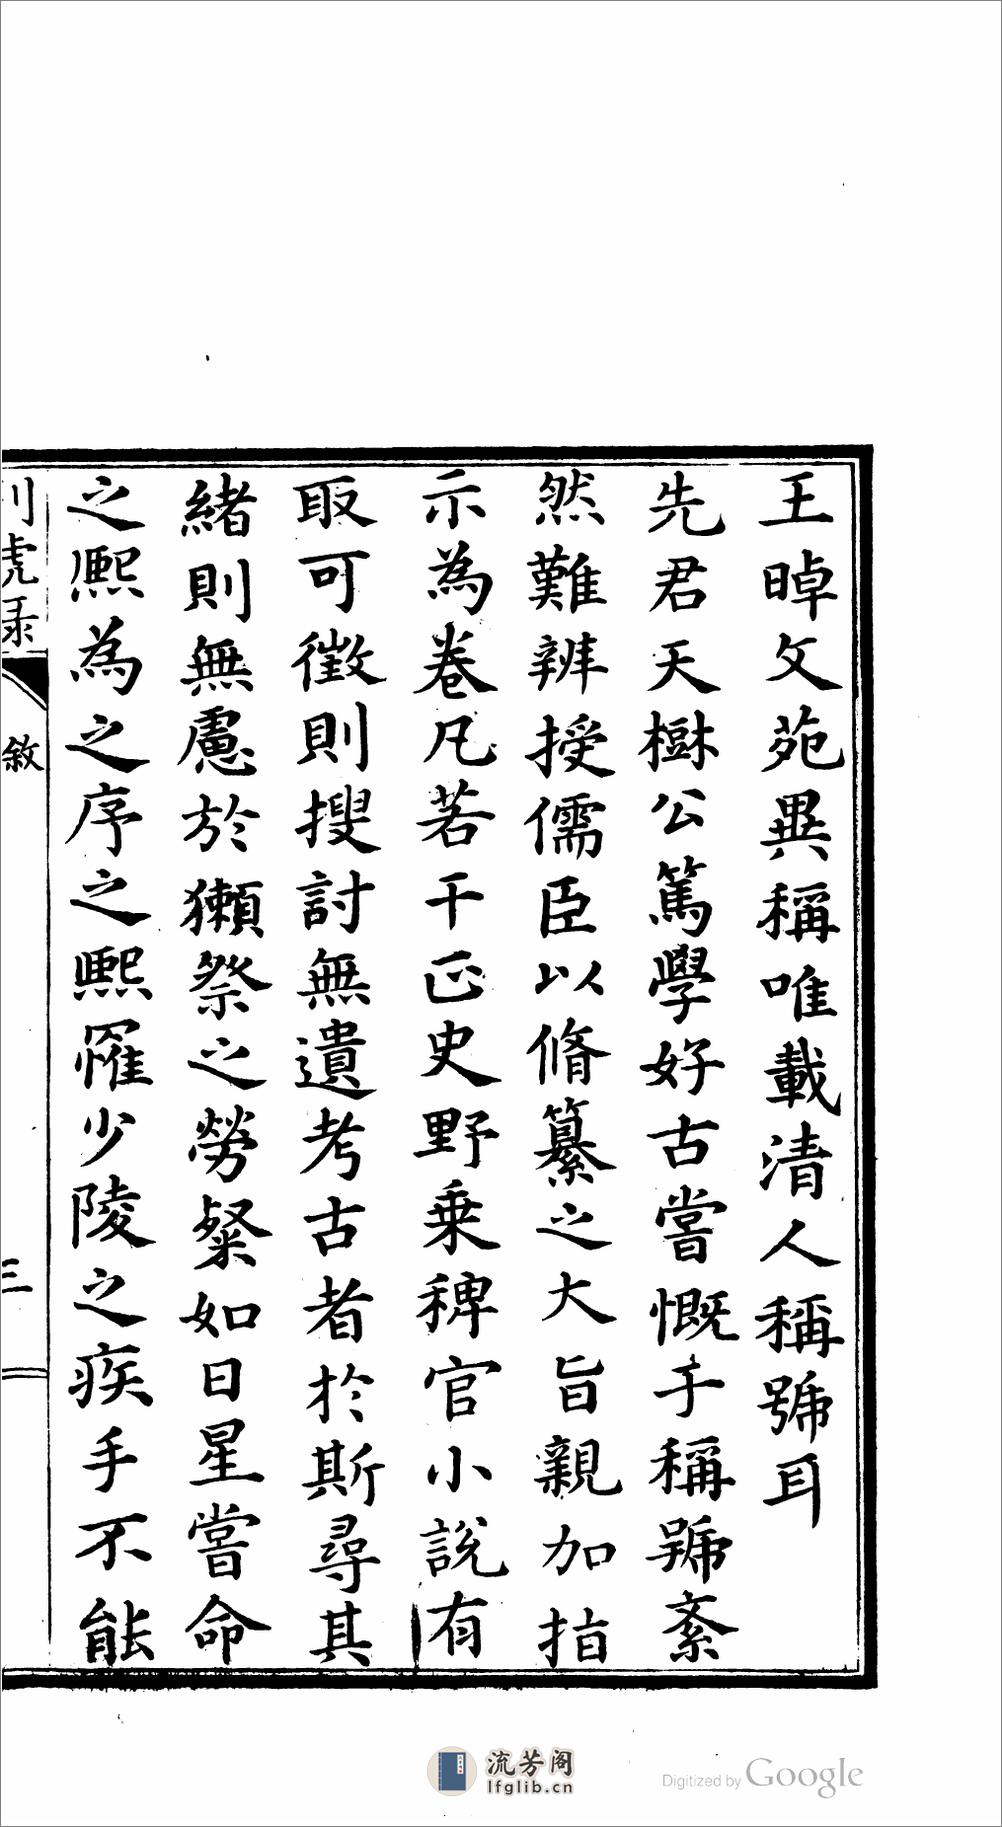 王晫文苑異稱唯載清人稱號耳
先君天樹公篤學好古嘗慨于稱號紊
然難辨授儒臣以脩纂之大旨親加指
示為卷凡若干正史野乗稗官小說有
取可徵則搜討無遺考古者於斯尋其
緒則無慮於獺祭之勞粲如日星嘗命
之熈為之序之熈罹少陵之疾手不能
別號录
敘
三
流芳阁
lfglib.cn
Digitized by Google